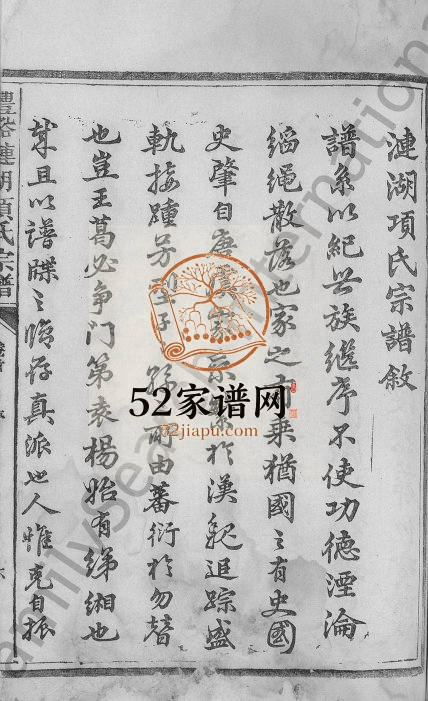 漣湖項氏宗譜敘
譜系以紀世族繼序不使功德湮淪
緬繩散落也家之有乘猶國之有史國
史肇自唐 家 於漢魏追踪盛
軌接踵芳 子孫所由蕃衍於勿替
也豈王葛必争門第袁楊始有綈緗也
哉且以譜牒之脩存真派也人惟克自振
漣湖項氏宗譜
52家谱网
52jiapu.com
FamilySearch International